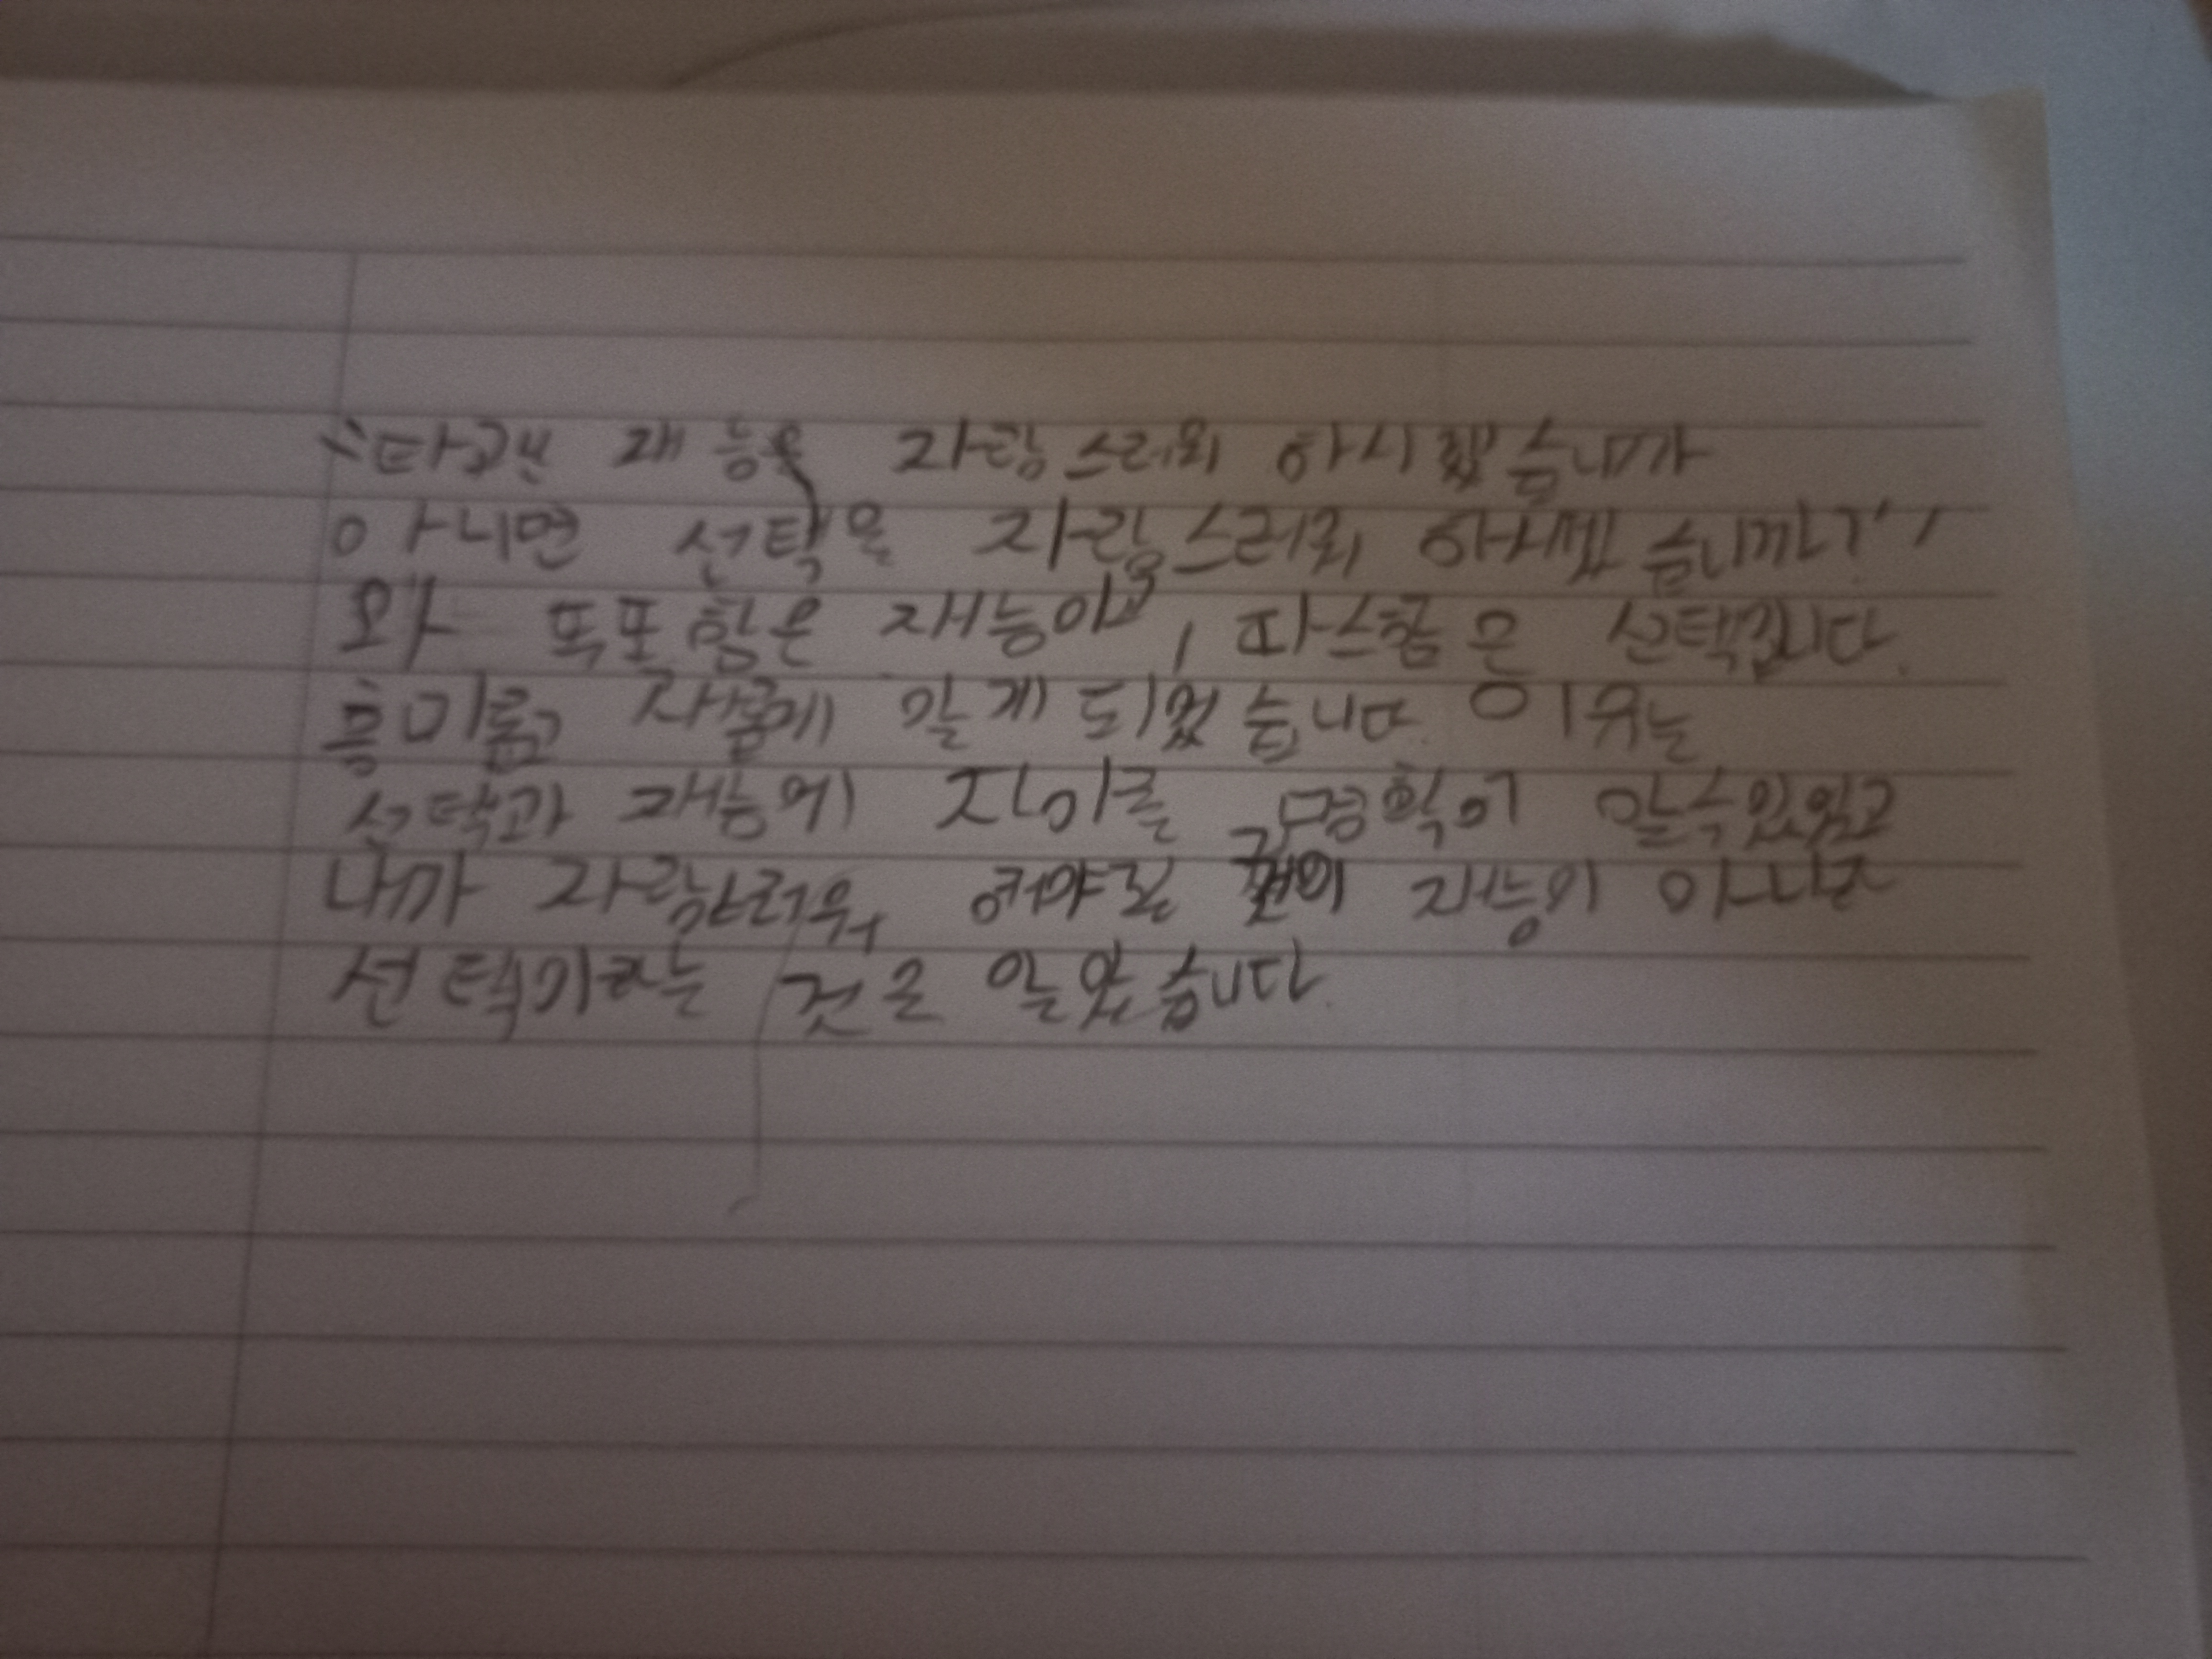 "타고난 재능을 자랑스러워 하시겠습니까
아니면 선택을 자랑스러워 하시겠습니까?"
와 똑똑함은 재능이고, 따스함은 선택입니다.
흥미롭고 새롭게 알게 되었습니다. 이유는
선택과 재능에 차이를 명확히 알수있었고
내가 자랑스러워 해야될 것이 재능이 아니고
선택이라는 것을 알았습니다.